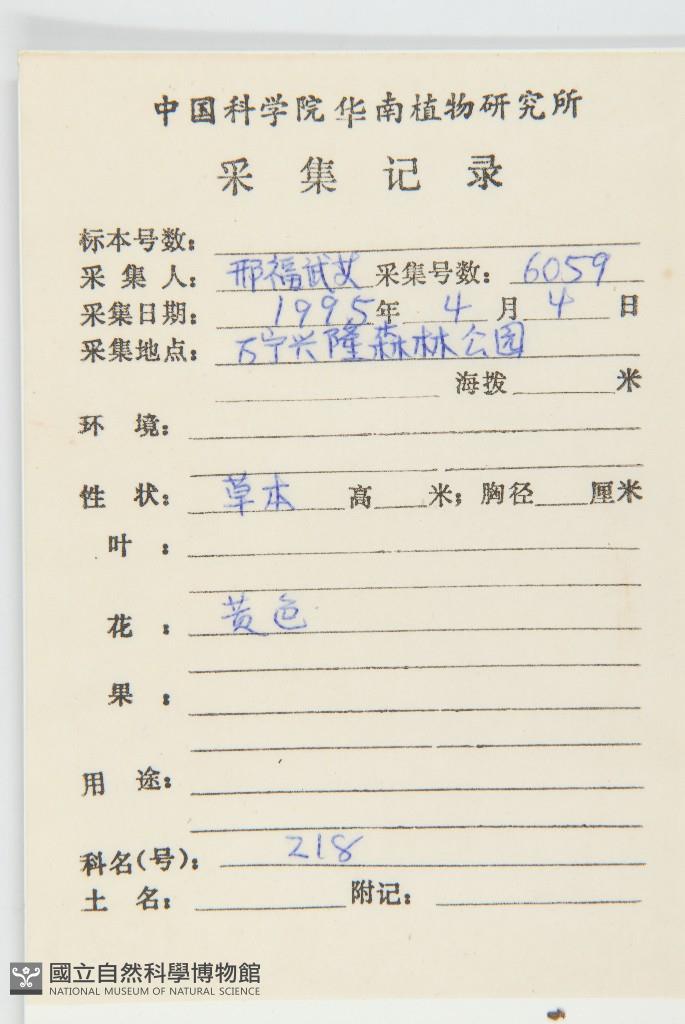 中国科学院华南植物研究所
采集记录
标本号数：
采集人：邢福武 采集号数：6059
采集日期：1995年4月4日
采集地点：万宁兴隆森林公园
海拨 米
环境：
性状：草本 高 米；胸径 厘米
叶：
花：黄色
果：
用途：
科名(号)：218
土名： 附记：
國立自然科學博物館
NATIONAL MUSEUM OF NATURAL SCIENCE